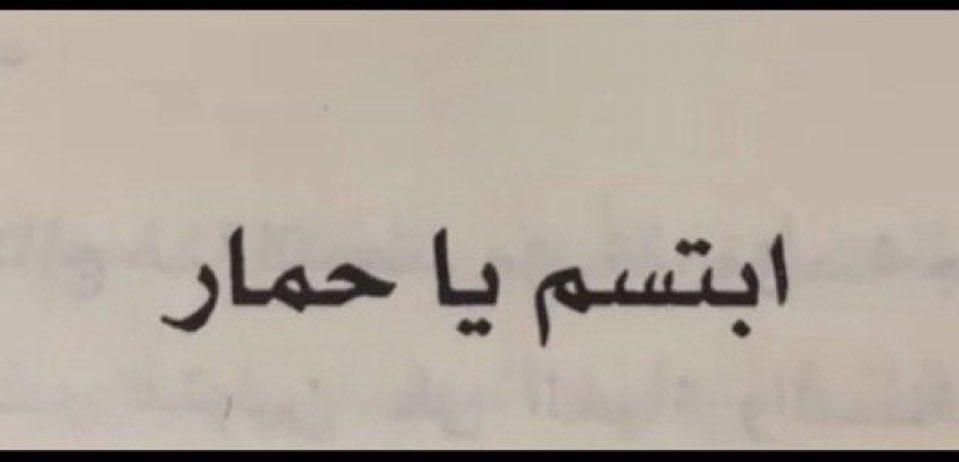 ابتسم يا حمار